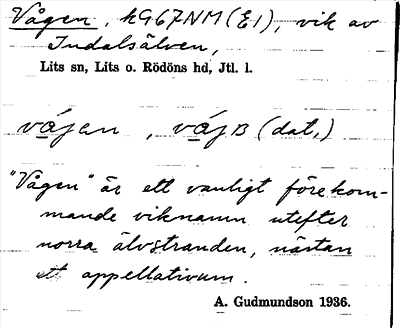 Vågen, kG67NM (E1), vik av
Indalsälven,
Lits sn, Lits o. Rödöns hd, Jtl. l.
vájen, vájB (dat.)
"Vågen" är ett vanligt förekom-
mande viknamn utefter
norra älvstranden, nästan
ett appellativum.
A. Gudmundson 1936.